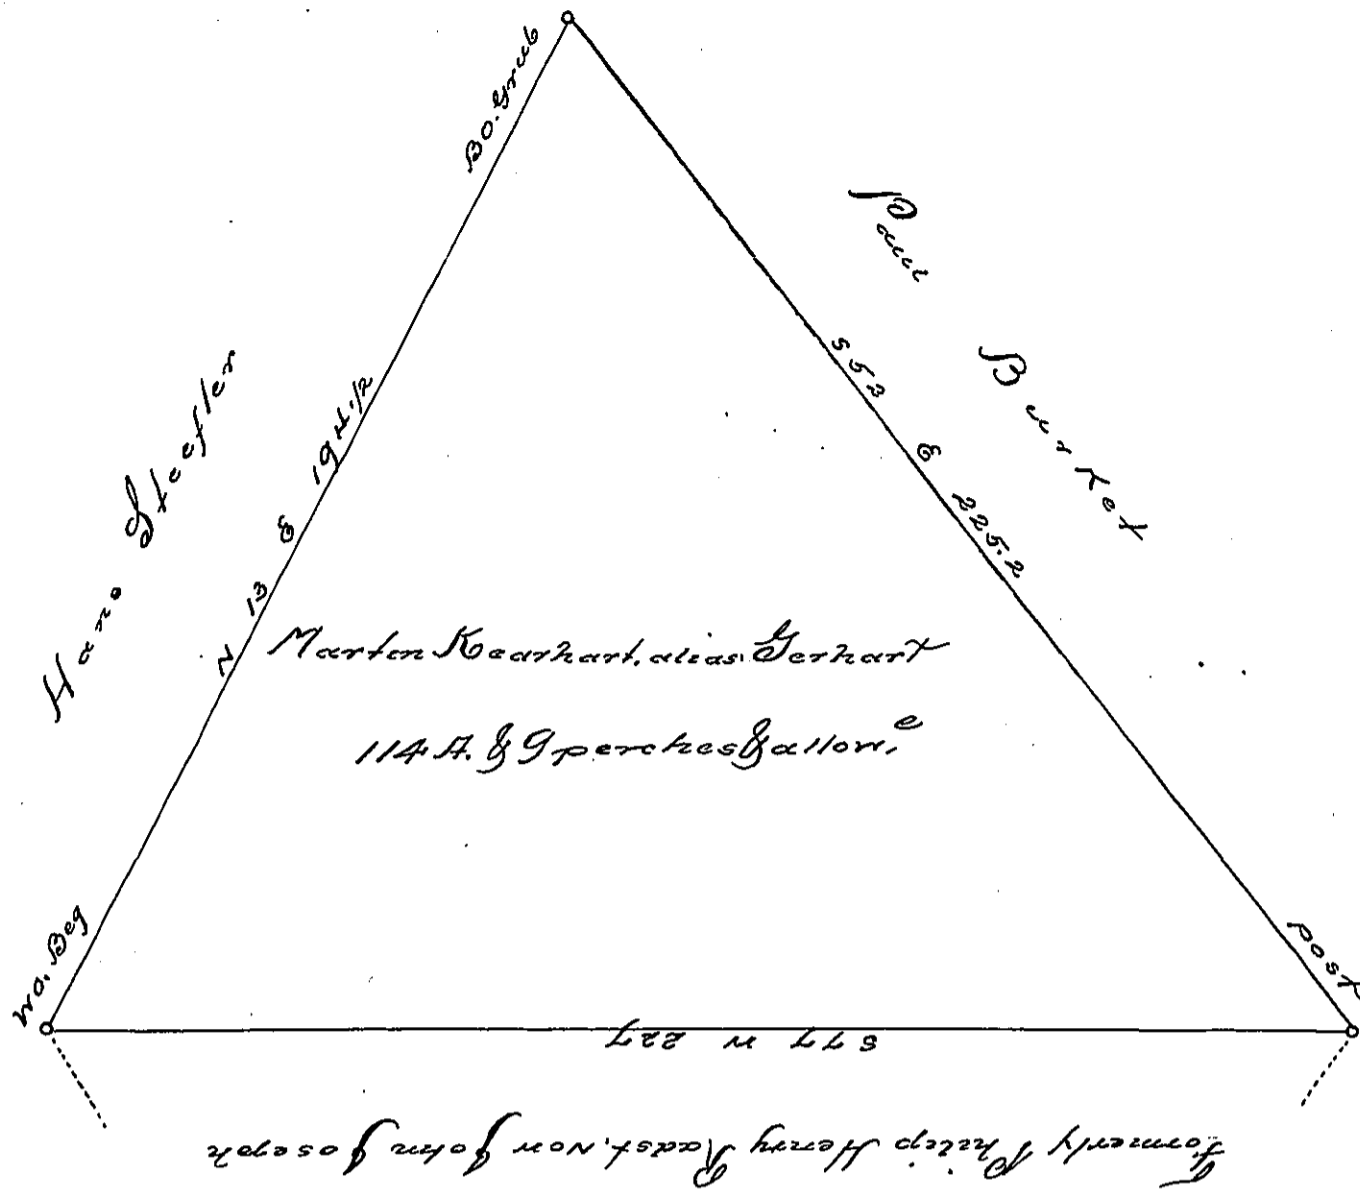 Bo. Grub
Hans Steefler
N 13 E 194.1/2
Paul Burket
S 53 E 225.2
Martin Kearhart, alias Gerhart
114 A. & 9 perches & allow,e
wo. Beg
post
S 77 W 227
Formerly Philip Henry Radst. Now John Joseph